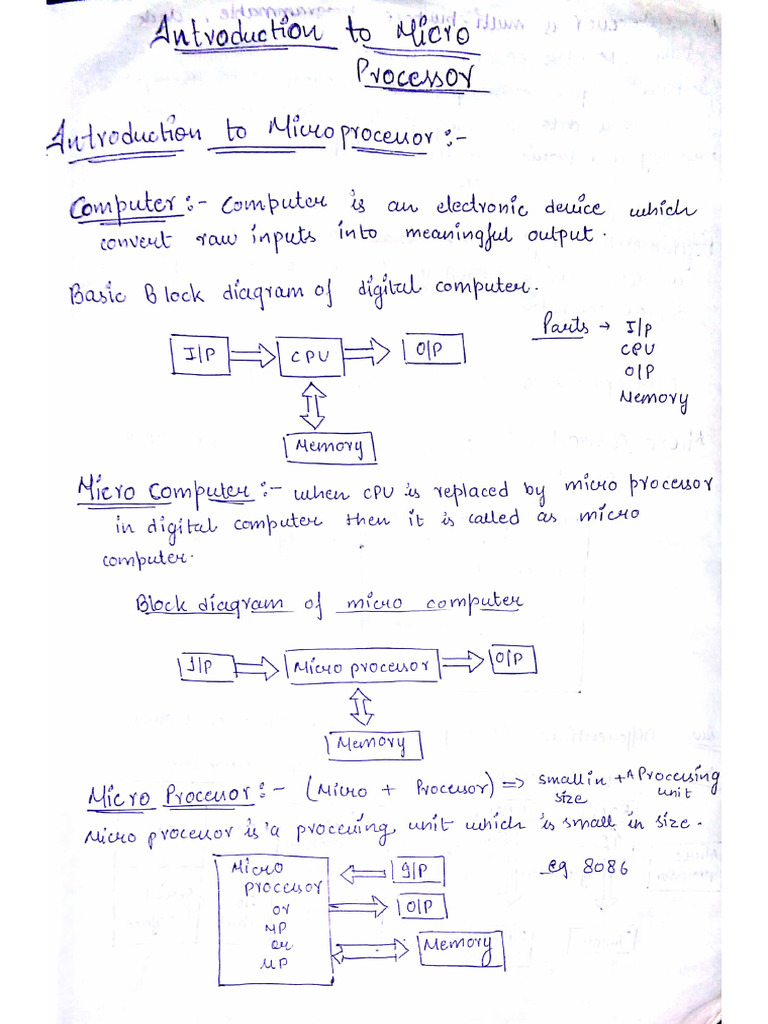 Introduction to Micro
Processor
Introduction to Microprocessor :-
Computer :- Computer is an electronic device which
convert raw inputs into meaningful output.
Basic Block diagram of digital computer.
Parts → I/p
CPU
O/P
Memory
I/P
CPU
O/P
Memory
Micro Computer :- when CPU is replaced by micro processor
in digital computer then it is called as micro
computer.
Block diagram of micro computer
I/P
Micro processor
O/P
Memory
Micro Processor :- (Micro + Processor) => small in size + A Processing unit
Micro processor is a processing unit which is small in size.
eg 8086
Micro
processor
or
MP
or
μP
I/P
O/P
Memory